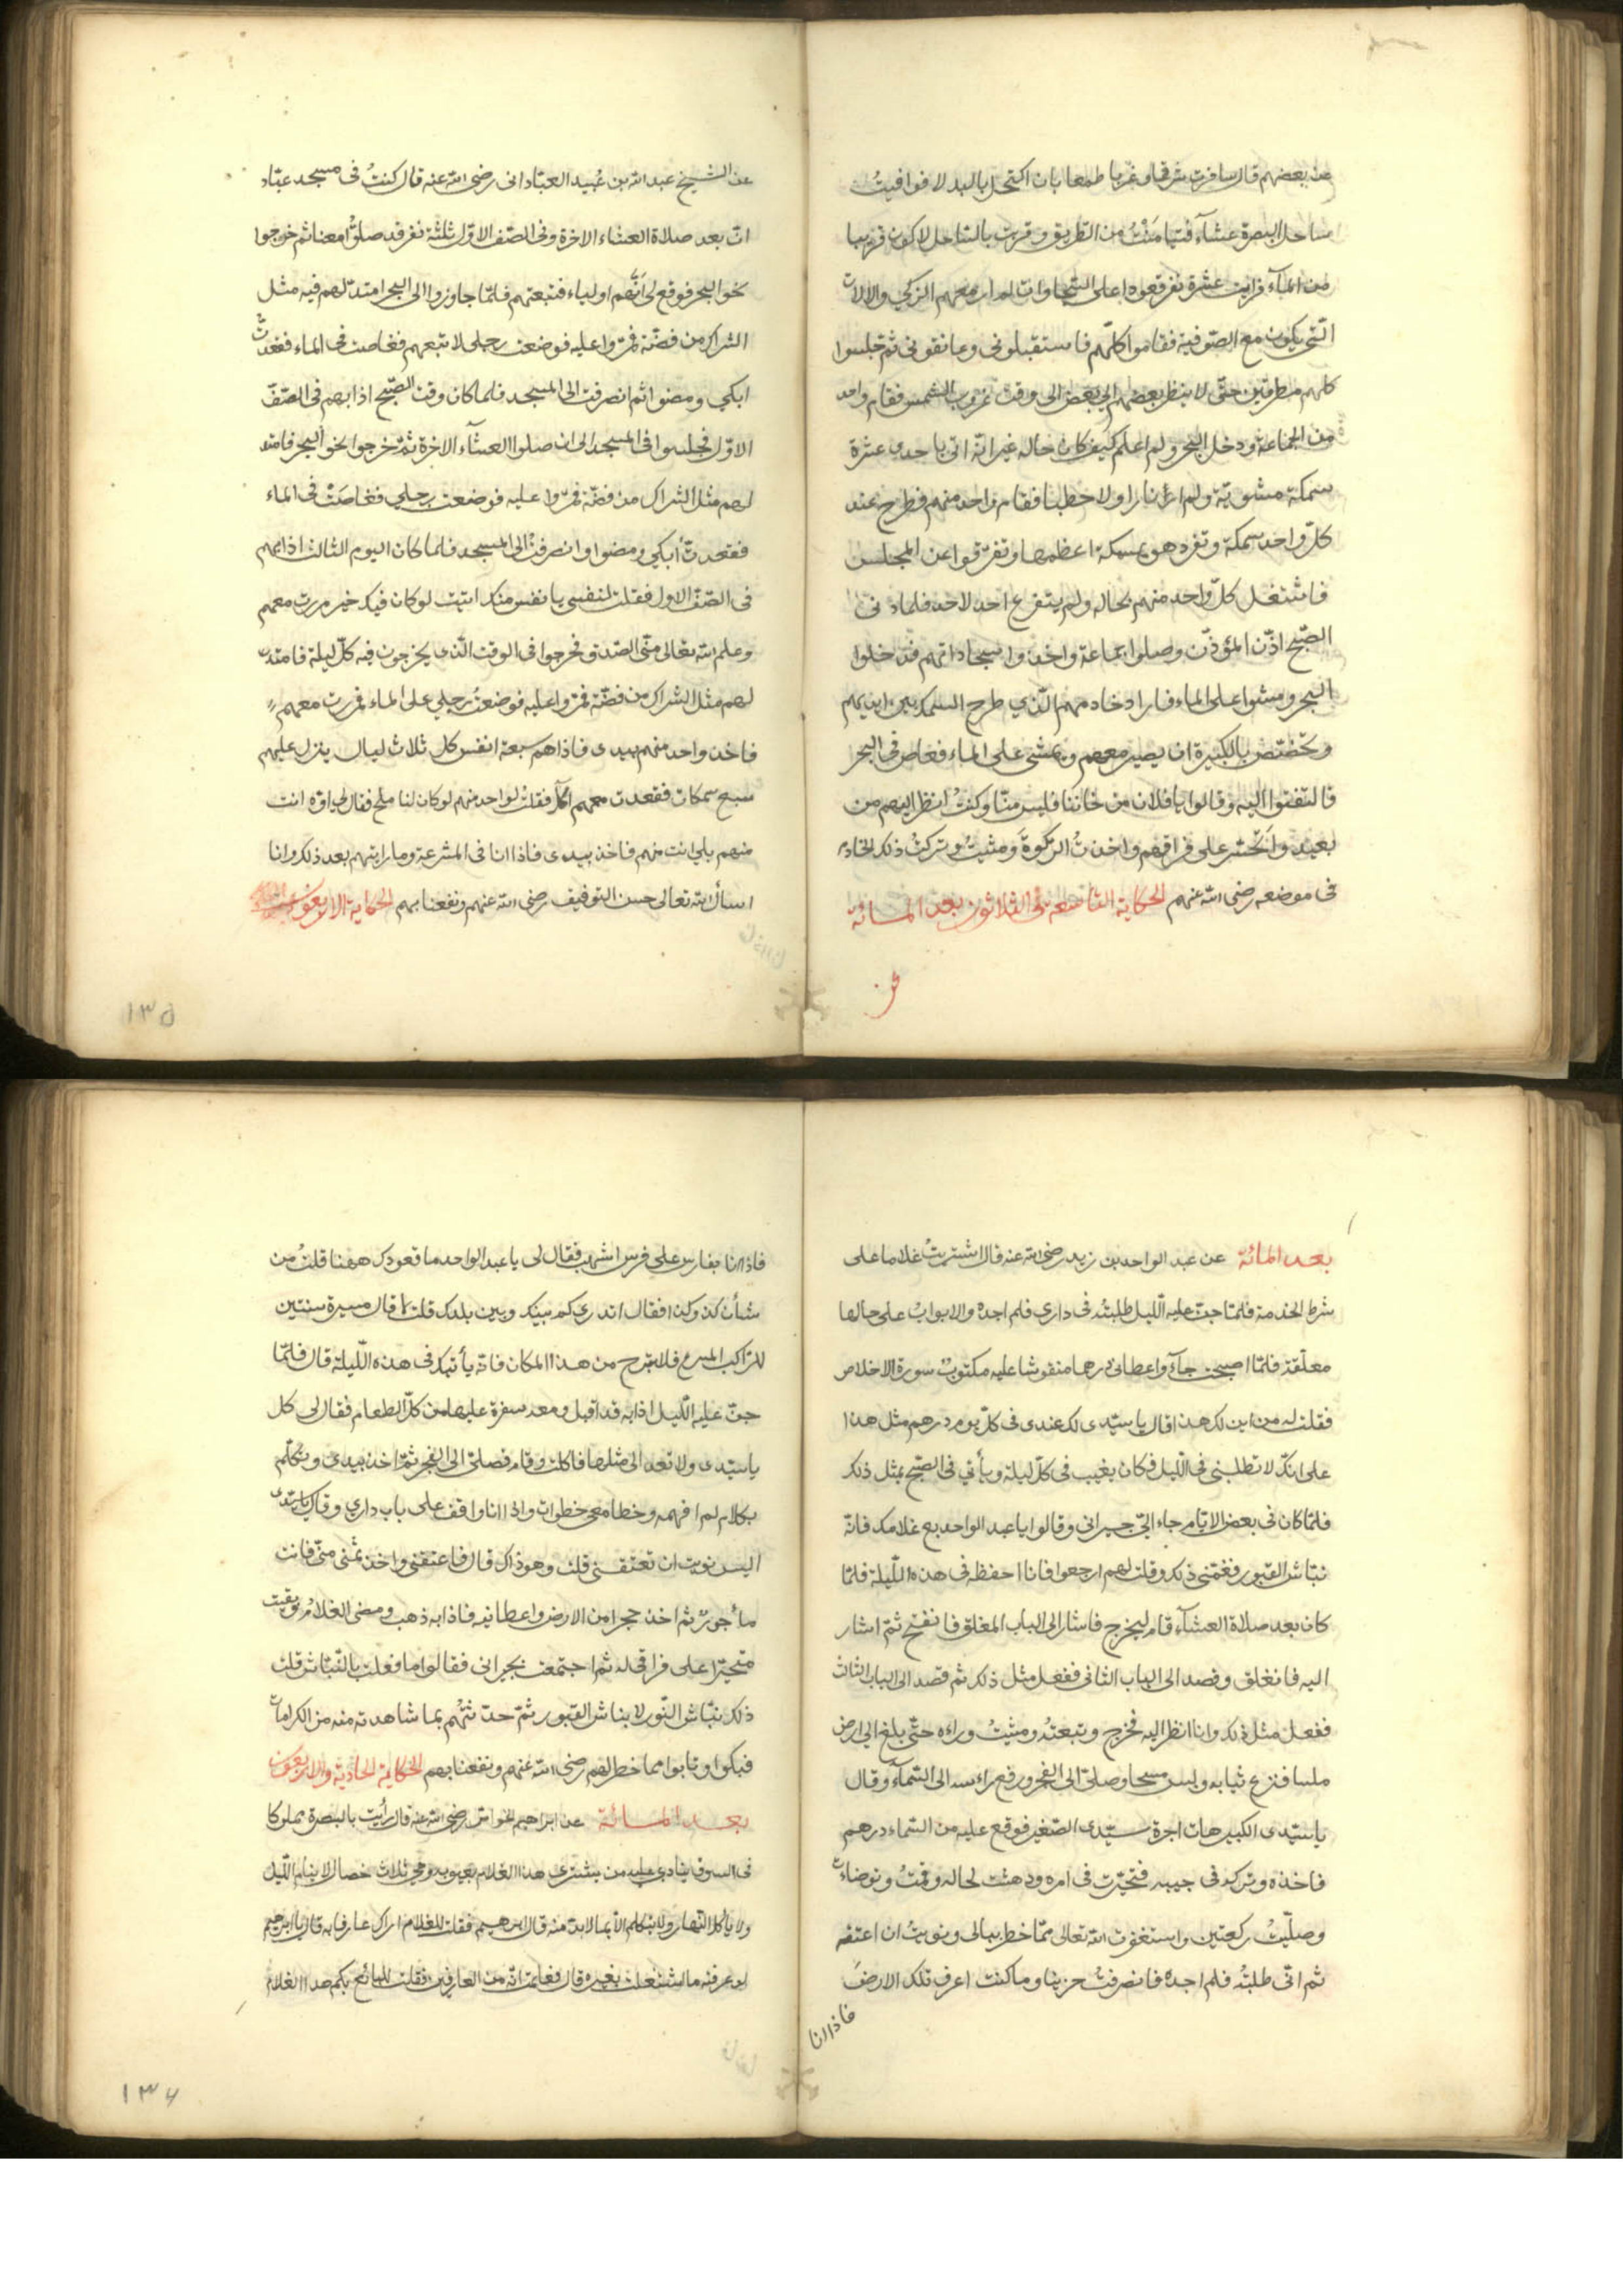 عن بعضهم قال سافرت شرقا وغربا طمعا بان اكتحل بالبدلا فوافيت
ساحل البصرة عشآء فتيامنت من الطريق وقربت بالساحل لاكون قريبا
من المآء فرايت عشرة نفر قعودا على السجاوات لم ار معهم الركي والالات
التي يكون مع الصوفية فقاموا كلّهم فاستقبلوني وعانقوني ثم جلسوا
كلهم مطرقين حتّى لا ينظر بعضهم الى بعض الى وقت غروب الشمس فقام واحد
من الجماعة ودخل البحر ولم اعلم كيف كان حاله غير انّه اتى باحدى عشرة
سمكة مشويّة ولم ار نارا ولا حطبا فقام واحد منهم فطرح عند
كلّ واحد سمكة وتفرد هو بسمكة اعظمها وتفرّقوا عن المجلس
فاشتغل كلّ واحد منهم بحاله ولم يتفرغ احد لاحد فلما دنى
الصبح اذّن المؤذّن وصلوا جماعة واخذوا سجاداتهم فدخلوا
البحر ومشوا على الماء فاراد خادمهم الّذي طرح السمك بين ايديهم
وتخصّص بالكبيرة ان يصير معهم ويمشي على الماء فغاص في البحر
فالتفتوا اليه وقالوا يا فلان من خاننا فليس منّا وكنتُ انظر اليهم من
بعيد واتحسّر على فراقهم واخذتُ الركوة ومشيتُ وتركتُ ذلك الخادم
في موضعه رضى الله عنهم الحكاية التاسعة والثلاثون بعد المائة
عن
عن الشيخ عبد الله بن عُبيد العبّادانى رضى الله عنه قال كنتُ فى مسجد عبّاد
ان بعد صلاة العشاء الاخرة وفى الصّف الاوّل ثلثة نفر قد صلوا معنا ثم خرجوا
نحو البحر فوقع لى انّهم اولياء فتبعتهم فلمّا جاوزوا الى البحر امتدّ لهم فيه مثل
الشراك من فضّة فمرّوا عليه فوضعت رجلى لاتبعهم فغاصت فى الماء فقعدتُ
ابكي ومضوا ثم انصرفت الى المسجد فلما كان وقت الصّبح اذا بهم فى الصّفّ
الاوّل فجلسوا فى المسجد الى ان صلوا العشآء الاخرة ثمّ خرجوا نحو البحر فامتد
لهم مثل الشراك من فضّة فمرّوا عليه فوضعت رجلي فغاصَتْ فى الماء
فقعدتُّ أبكي ومضوا وانصرفتُ الى المسجد فلما كان اليوم الثالث اذا بهم
فى الصّفّ الاول فقلت لنفسى يا نفس منك اتيت لو كان فيك خير مررت معهم
وعلم الله تعالى منّى الصّدق فخرجوا فى الوقت الّذى يخرجون فيه كلّ ليلة فامتد
لهم مثل الشراك من فضّة فمروا عليه فوضعتُ رجلي على الماء فمررت معهم
فاخذ واحد منهم بيدى فاذا هم سبعة انفس كل ثلاث ليال ينزل عليهم
سبع سمكات فقعدت معهم اكل فقلتُ لواحد منهم لو كان لنا ملح فقال لى اوّه انت
منهم بلى انت منهم فاخذ بيدى فاذا انا فى المشرعة وما رايتهم بعد ذلك وانا
اسأل الله تعالى حسن التوفيق رضى الله عنهم ونفعنا بهم الحكاية الاربعون
١٣٥
بعد المائة عن عبد الواحد بن زيد رضى الله عنه قال اشتريتُ غلاما على
شرط الخدمة فلمّا جنّ عليه الّليل طلبتُه فى داري فلم اجده والابوابُ على حالها
مغلّقة فلمّا اصبحت جآء واعطانى درهما منقوشا عليه مكتوبٌ سورة الاخلاص
فقلت له من اين لك هذا قال يا سيّدى لك عندى فى كلّ يوم درهم مثل هذا
على انّك لا تطلبنى فى اللّيل فكان يغيب فى كلّ ليلة ويأتي فى الصّبح بمثل ذلك
فلمّا كان فى بعض الايّام جاء اليّ جيرانى وقالوا يا عبد الواحد بع غلامك فانّه
نبّاش القبور فغمّنى ذلك وقلت لهم ارجعوا فانا احفظه فى هذه اللّيلة فلمّا
كان بعد صلاة العشآء قام ليخرج فاشار الى الباب المغلق فانفتح ثمّ اشار
اليه فانغلق وقصد الى الباب الثانى ففعل مثل ذلك ثم قصد الى الباب الثالث
ففعل مثل ذلك وانا انظر اليه فخرج وتبعتُه ومشيتُ وراءه حتّى بلغ الى ارض
ملسا فنزع ثيابه ولبس مسحا وصلى الى الفجر ورفع راسه الى السّمآء وقال
يا سيّدى الكبير هات اجرة سيّدى الصّغير فوقع عليه من السّماء درهم
فاخذه وتركه فى جيبه فتحيّرت فى امره ودهشت لحاله وقمتُ وتوضاءت
وصلّيتُ ركعتين واستغفرت الله تعالى ممّا خطر ببالى ونويتُ ان اعتقه
ثم انّى طلبتُه فلم اجده فانصرفتُ حزينا وما كنت اعرف تلك الارض
فاذا انا
فاذا انا بفارس على فرس اشهب فقال لى يا عبد الواحد ما قعودك ههنا قلتُ من
شأن كذا وكذا فقال اتدري كم بينك وبين بلدك قلت لا قال مسيرة سنتين
للرّاكب المسرع فلا تبرح من هذا المكان فانّه يأتيك فى هذه اللّيلة قال فلمّا
جنّ عليه اللّيل اذا به قد اقبل ومعه سفرة عليها من كلّ الطعام فقال لى كل
يا سيّدى ولا تعد الى مثلها فاكلت وقام فصلّى الى الفجر ثمّ اخذ بيدى وتكلّم
بكلام لم افهمه وخطا معى خطوات واذا انا واقف على باب داري وقال يا سيّدى
اليس نويت ان تعتقنى قلت وهو ذاك قال فاعتقنى واخذ ثمنى منّى فانت
مأجورٌ ثم اخذ حجرا من الارض واعطانيه فاذا به ذهب ومضى الغلامُ وبقيت
متحيّرا على فراقى له ثم اجتمعت بجيرانى فقالوا ما فعلت بالنّبّاش قلت
ذلك نبّاش النّور لا نباش القبور ثمّ حدّثتُهم بما شاهدته منه من الكرامات
فبكوا وتابوا مما خطر لهم رضى الله عنهم ونفعنا بهم الحكاية الحادية والاربعون
بعد المائة عن ابراهيم الخواص رضى الله عنه قال رأيت بالبصرة مملوكا
فى السوق ينادى عليه من يشترى هذا الغلام بعيوبه وهي ثلاث خصال لا ينام اللّيل
ولا يأكل النّهار ولا يتكلم الاّ بما لا بدّ منه قال ابرهيم فقلت للغلام اراك عارفا به قال يا ابرهيم
لو عرفته ما اشتغلت بغيره قال فعلمت انّه من العارفين فقلت للبائع بكم هذا الغلام
١٣٦